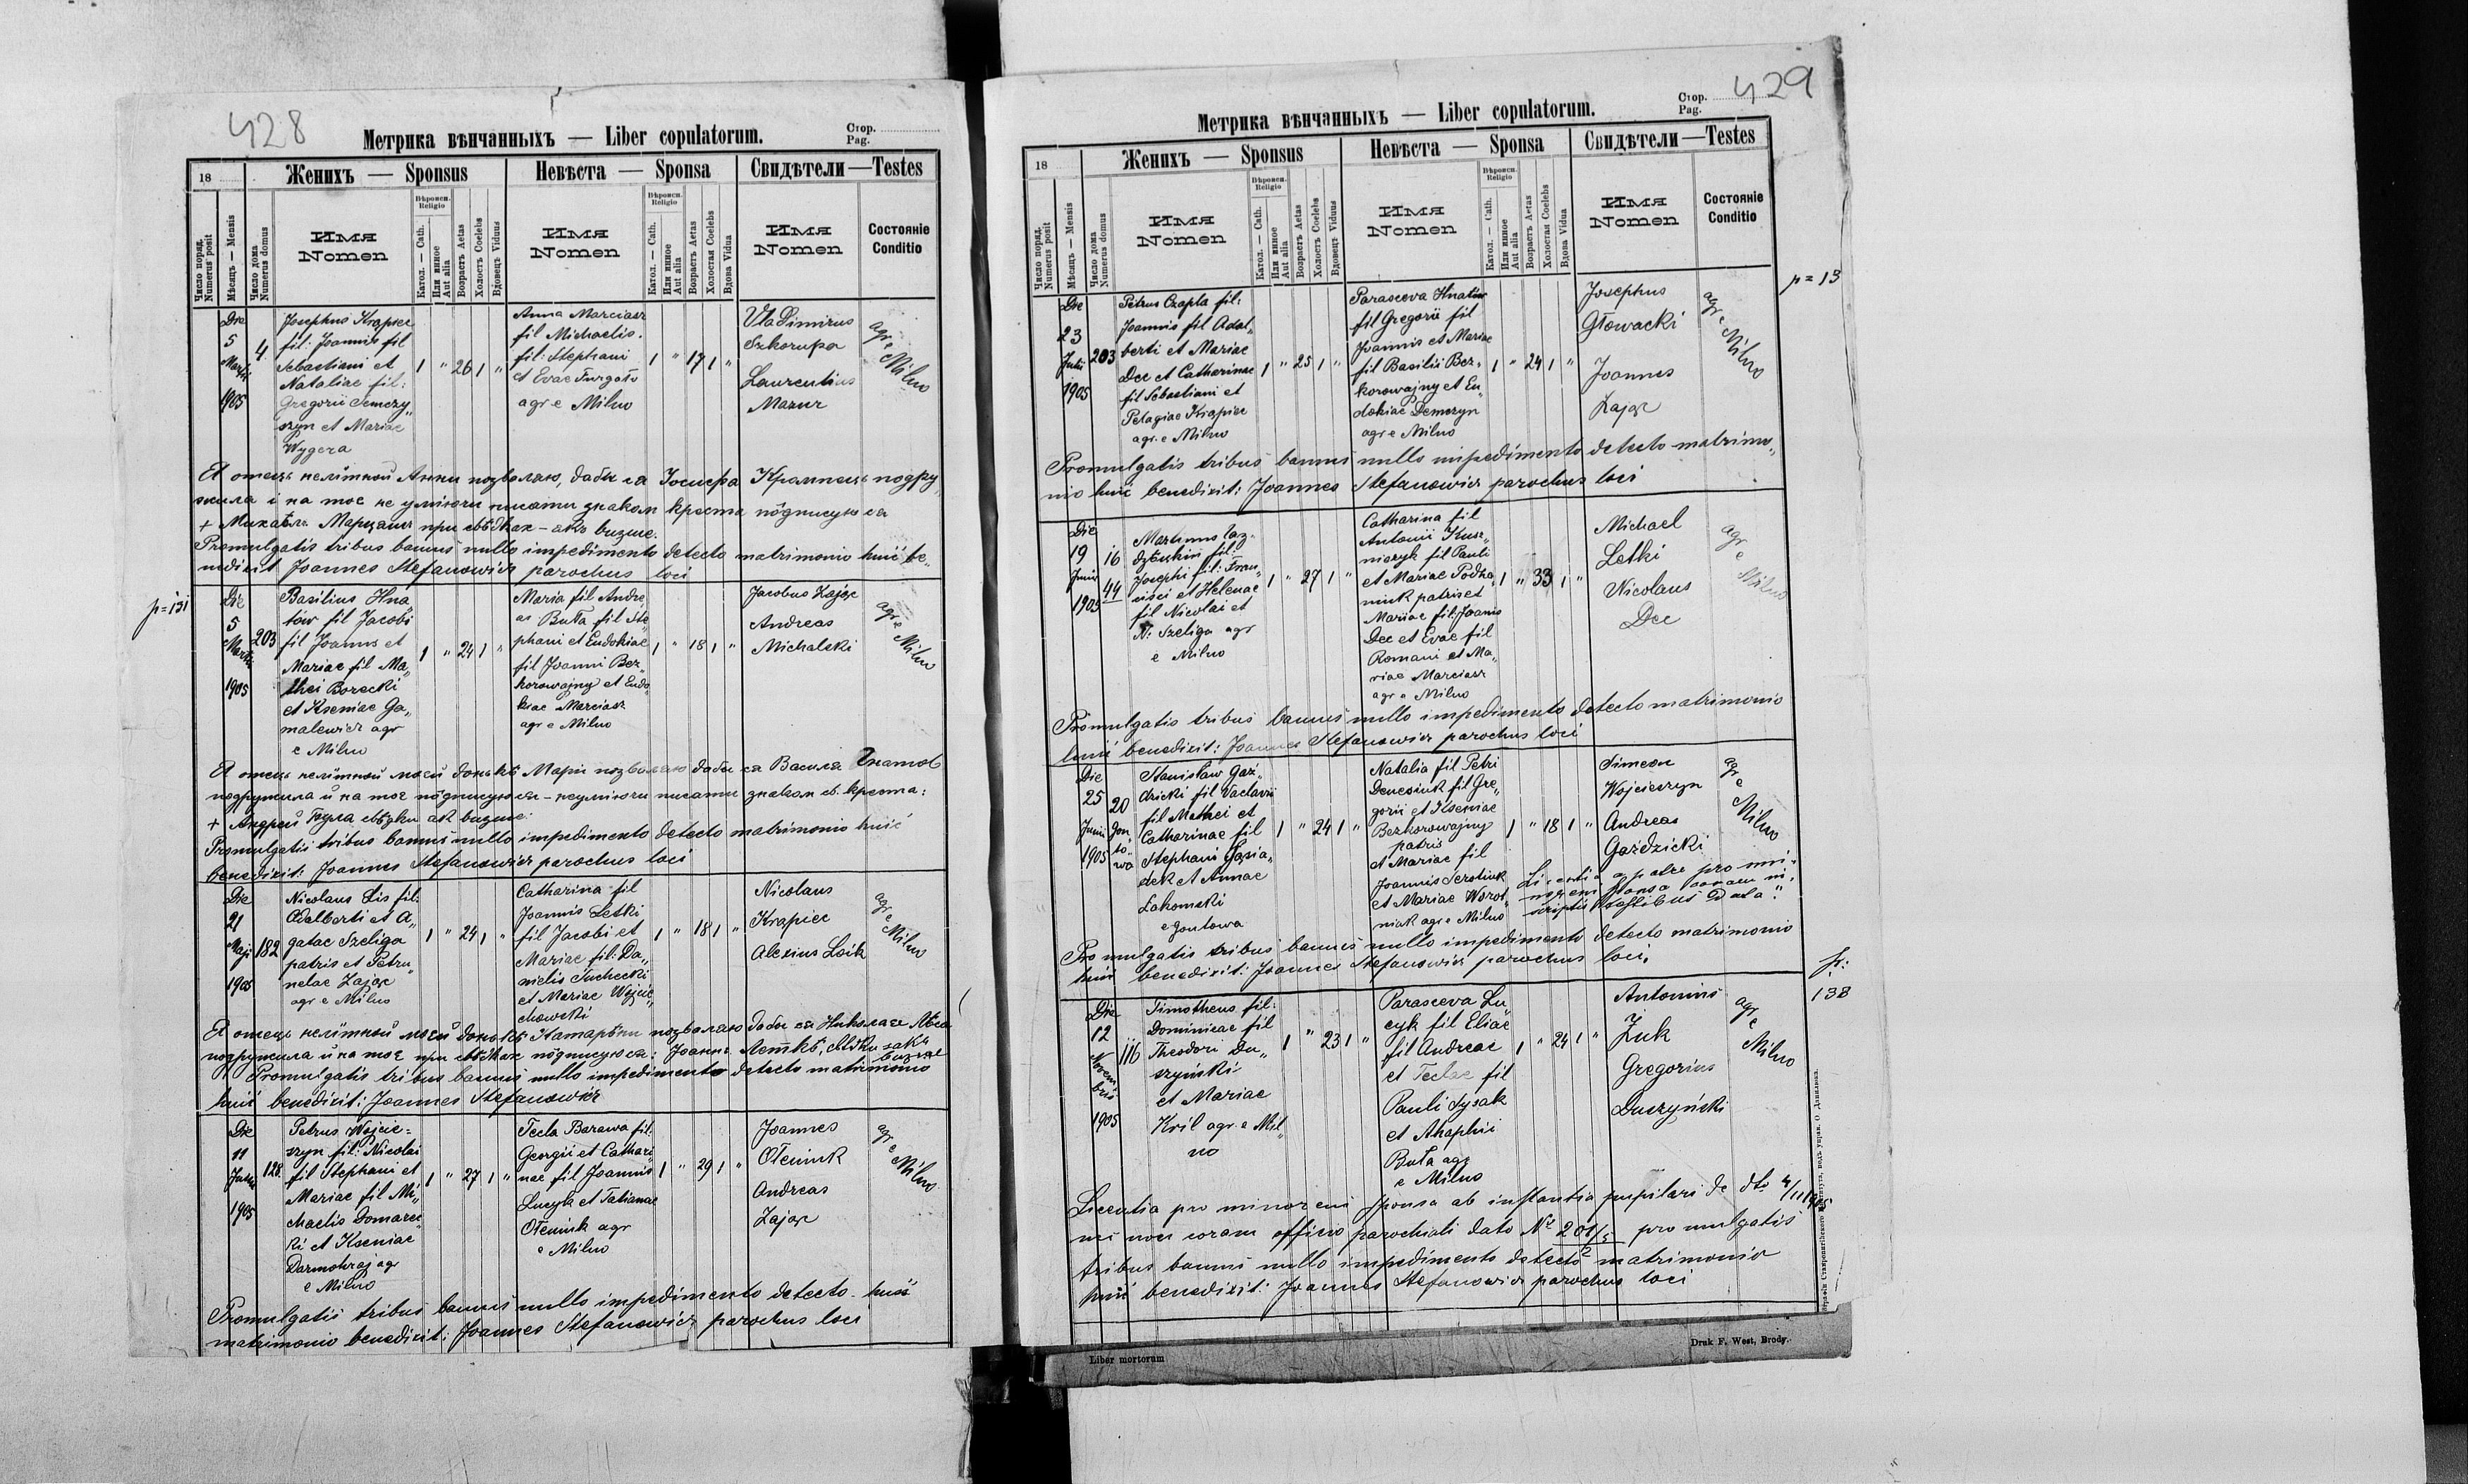 428
Метрика вѣнчанныхъ — Liber copulatorum.
Стор.
Pag.
18
Женихъ — Sponsus
Невѣста — Sponsa
Свидѣтели — Testes
Число поряд.
Numerus posit
Мѣсяцъ — Mensis
Число дома
Numerus domus
Имя
Nomen
Вѣроисп.
Religio
Катол. — Cath.
Или инное
Aut alia
Возрастъ Aetas
Холостъ Coelebs
Вдовецъ Viduus
Имя
Nomen
Вѣроисп.
Religio
Катол. — Cath.
Или инное
Aut alia
Возрастъ Aetas
Холостая Coelebs
Вдова Vidua
Имя
Nomen
Состояніе
Conditio
Die
5
Martii
1905
4
Josephus Krapiec
fil: Joannis fil
Sebastiani et
Nataliae fil:
Gregorii Semczy„
szyn et Mariae
Wygera
1 " 26 1 "
Anna Marciasz
fil Michaelis.
fil: Stephani
et Evae
agr e Milno
1 " 17 1 "
Vladimirus
Szkorupa
Laurentius
Mazur
agr e Milno
Я отець нелѣтной Анни позваляю, дабы ся Іосифа Крапець подру„
жила і на тое не умѣючи писати знаком креста пôдписую ся
+ Михаѣлъ Марцаш при свѣдках – акъ выше.
Promulgatis tribus bannis nullo impedimento detecto matrimonio huic be„
nedixit Joannes Stefanowicz parochus loci
p=131
Die
5
Martii
1905
203
Basilius Hna„
tów fil Jacobi
fil Joannis et
Mariae fil Ma„
thei Borecki
et Kseniae Ga„
malewicz agr
e Milno
1 " 24 1 "
Maria fil Andre„
ae Buła fil Ste„
phani et Eudokiae
fil Joanni Bez„
korowajny et Eudo„
kiae Marciasz
agr e Milno
1 " 18 1 "
Jacobus Zając
Andreas
Michalski
agr e Milno
Я отець нелѣтной моей доньки Маріи позваляю дабы ся Василя Гнатов
подружила и на тое пôдписую ся – неумѣючи писати знаком св. креста:
+ Андрей Була свѣдки ак выше
Promulgatis tribus bannis nullo impedimento detecto matrimonio huic
benedixit: Joannes Stefanowicz parochus loci
Die
21
Maji
1905
182
Nicolaus Lis fil:
Adalberti et A„
gatae Szeliga
patris et Petru„
nelae Zając
agr e Milno
1 " 24 1 "
Catharina fil
Joannis Letki
fil Jacobi et
Mariae fil: Da„
nielis Tuchecki
et Mariae Wojcie„
chowski
1 " 18 1 "
Nicolaus
Krapiec
Alexius Łoik
agr e Milno
Я отець нелѣтной моей донькѣ позваляю дабы ся Николая
подружила и на тое при свѣдках пôдписую ся: свѣдки какъ
выше
Promulgatis tribus bannis nullo impedimento detecto matrimonio
huic benedixit: Joannes Stefanowicz
Die
11
1905
128
Petrus Wojcie=
szyn fil: Nicolai
fil Stephani et
Mariae fil Mi„
chaelis Domarec„
ki et Kseniae
Darmohraj agr
e Milno
1 " 27 1 "
Tecla Barawa fil:
Georgii et Cathari„
nae fil Joannis
Lucyk et Tatianae
Ołeniuk agr
e Milno
1 " 29 1 "
Joannes
Ołeniuk
Andreas
Zając
agr e Milno
Promulgatis tribus bannis nullo impedimento detecto huic
matrimonio benedixit: Joannes Stefanowicz parochus loci
429
Метрика вѣнчанныхъ — Liber copulatorum.
Стор.
Pag.
18
Женихъ — Sponsus
Невѣста — Sponsa
Свидѣтели — Testes
Число поряд.
Numerus posit
Мѣсяцъ — Mensis
Число дома
Numerus domus
Имя
Nomen
Вѣроисп.
Religio
Катол. — Cath.
Или инное
Aut alia
Возрастъ Aetas
Холостъ Coelebs
Вдовецъ Viduus
Имя
Nomen
Вѣроисп.
Religio
Катол. — Cath.
Или инное
Aut alia
Возрастъ Aetas
Холостая Coelebs
Вдова Vidua
Имя
Nomen
Состояніе
Conditio
p=13
Die
23
1905
203
Petrus Czapla fil:
Joannis fil Adal„
berti et Mariae
Dec et Catharinae
fil Sebastiani et
Pelagiae Krapiec
agr. e Milno
1 " 25 1 "
Parasceva Hnatiw
fil Gregorii fil
Joannis et Mariae
fil Basilii Bez„
korowajny et Eu„
dokiae Demczyn
agr e Milno
1 " 24 1 "
Josephus
Głowacki
Joannes
Zając
agr e Milno
Promulgatis tribus bannis nullo impedimento detecto matrimo„
nio huic benedixit: Joannes Stefanowicz parochus loci
Die
19
Junii
1905
16
44
Martinus
fil:
Josephi fil: Fran„
cisci et Helenae
fil Nicolai et
N: Szeliga agr
e Milno
1 " 27 1 "
Catharina fil
Antonii Kusz„
nieryk fil Pauli
et Mariae Podha„
niuk patris et
Mariae fil: Joannis
Dec et Evae fil
Romani et Ma„
riae Marciasz
agr e Milno
1 " 33 1 "
Michael
Letki
Nicolaus
Dec
agr e Milno
Promulgatis tribus bannis nullo impedimento detecto matrimonio
huic benedixit: Joannes Stefanowicz parochus loci
Die
25
Junii
1905
20
Gon„
to„
wa
Stanisław Gaź„
dzicki fil Vaclavii
fil Mathei et
Catharinae fil
Stephani Gąsia„
dek et Annae
Łakomski
e Gontowa
1 " 24 1 "
Natalia fil Petri
Denesiuk fil Gre„
gorii et Kseniae
Bezkorowajny
patris
et Mariae fil
Joannis Serotiuk
et Mariae Worot„
niak agr e Milno
1 " 18 1 "
Simeon
Wojcieszyn
Andreas
Gaździcki
agr e Milno
Licentia a patre pro mi„
noreni sponsa coram in„
scriptis testibus data."
Promulgatis tribus bannis nullo impedimento detecto matrimonio
huic benedixit: Joannes Stefanowicz parochus loci.
138
Die
12
Novem„
bris
1905
116
Timotheus fil:
Dominicae fil
Theodori Du„
szyński
et Mariae
Kril agr. e Mil„
no
1 " 23 1 "
Parasceva Lu„
cyk fil Eliae
fil Andreae
et Teclae fil
Pauli Sysak
et Ahaphii
Buła agr
e Milno
1 " 24 1 "
Antonius
Żuk
Gregorius
Duszyński
agr e Milno
Licentia pro minoreni sponsa ab instantia pupilari de dto 4/11 1905
coram officio parochiali dato No 201/5 promulgatis
2
tribus bannis nullo impedimento detecto matrimonio
huic benedixit: Joannes Stefanowicz parochus loci
Liber mortorum
Druk F. West, Brody.